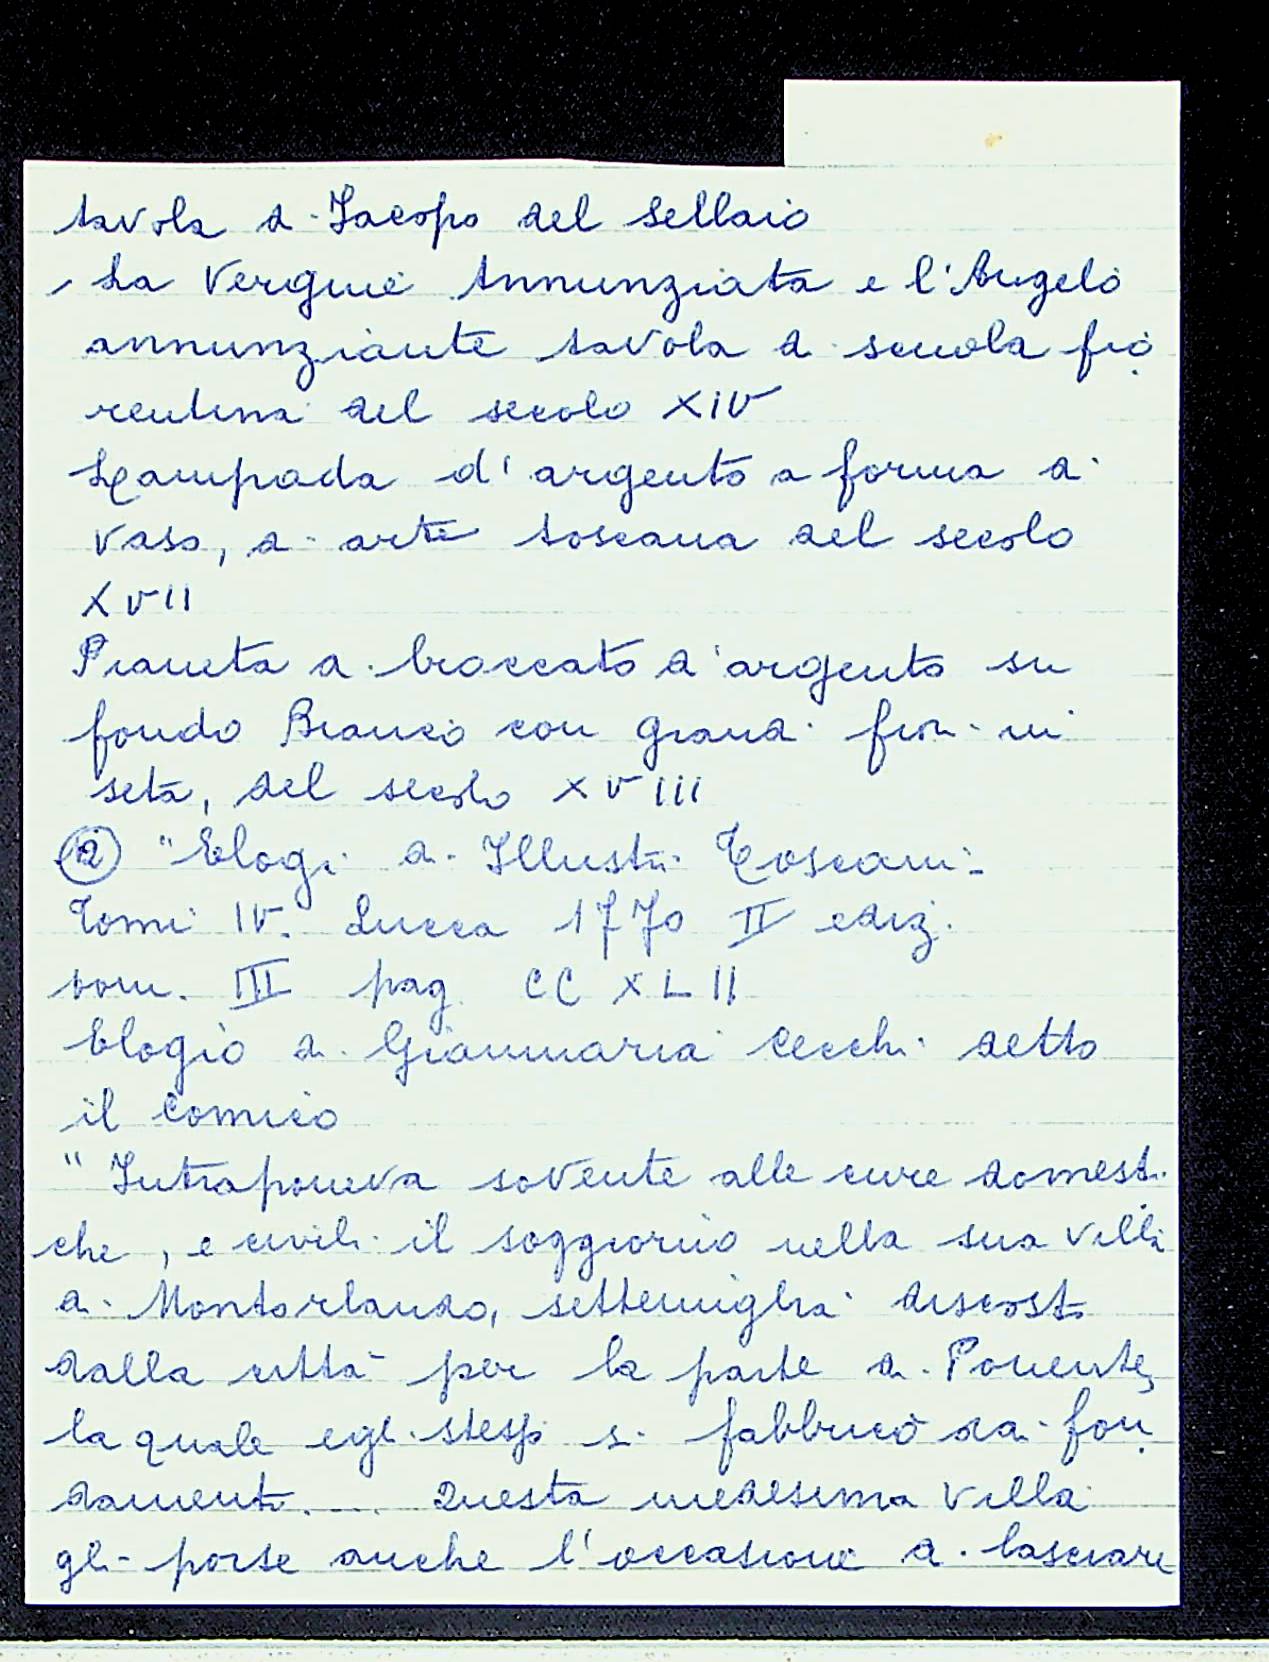 tavola di Jacopo del Sellaio
, La Vergine Annunziata e l'Angelo
annunziante tavola di scuola fio
rentina del secolo XIV
Lampada d'argento a forma di
vaso, di arte toscana del secolo
XVII
Pianeta di broccato d'argento su
fondo Bianco con grandi fiori in
seta, del secolo XVIII
(2) "Elogi di Illustri Toscani -
Tomi IV. Lucca 1770 II ediz.
tom. III pag CCXLII
Elogio di Gianmaria Cecchi detto
il Comico
" Intraponeva sovente alle cure domesti
che, e civili il soggiorno nella sua villa
di Montorlando, settemiglia discosto
dalla città per la parte di Ponente,
la quale egli stesso si fabbricò dai fon
damenti.... Questa medesima Villa
gli porse anche l'occasione di lasciare